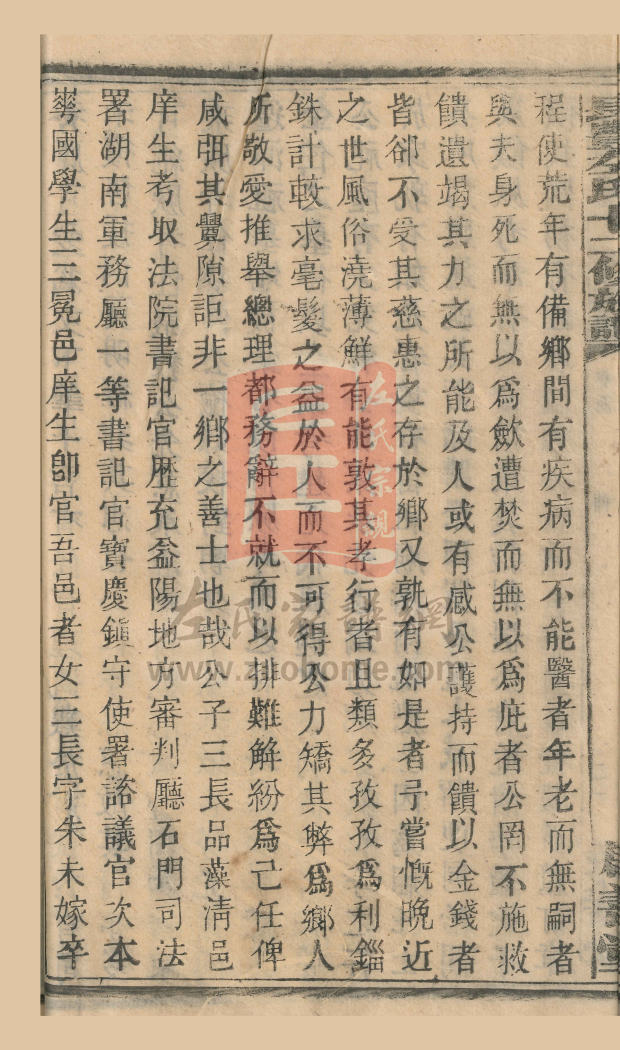 程使荒年有備鄉間有疾病而不能醫者年老而無嗣者
與夫身死而無以爲歛遭焚而無以爲庇者公罔不施救
饋遺竭其力之所能及人或有感公護持而饋以金錢者
皆卻不受其慈惠之存於鄉又孰有如是者予嘗慨晚近
之世風俗澆薄鮮有能敦其孝行者且類多孜孜爲利錙
銖計較求毫髮之益於人而不可得公力矯其弊爲鄉人
所敬愛推舉總理都務辭不就而以排難解紛爲己任俾
咸弭其釁隙詎非一鄉之善士也哉公子三長品藻淸邑
庠生考取法院書記官歷充益陽地方審判廳石門司法
署湖南軍務廳一等書記官寶慶鎮守使署諮議官次本
崋國學生三冕邑庠生卽官吾邑者女三長字朱未嫁卒
左氏宗親
左氏家譜網
www.zuohome.com